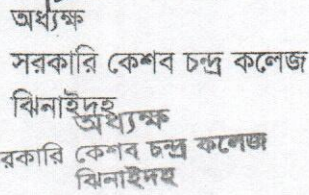 অধ্যক্ষ
সরকারি কেশব চন্দ্র কলেজ
ঝিনাইদহ
অধ্যক্ষ
রকারি কেশব চন্দ্র কলেজ
ঝিনাইদহ